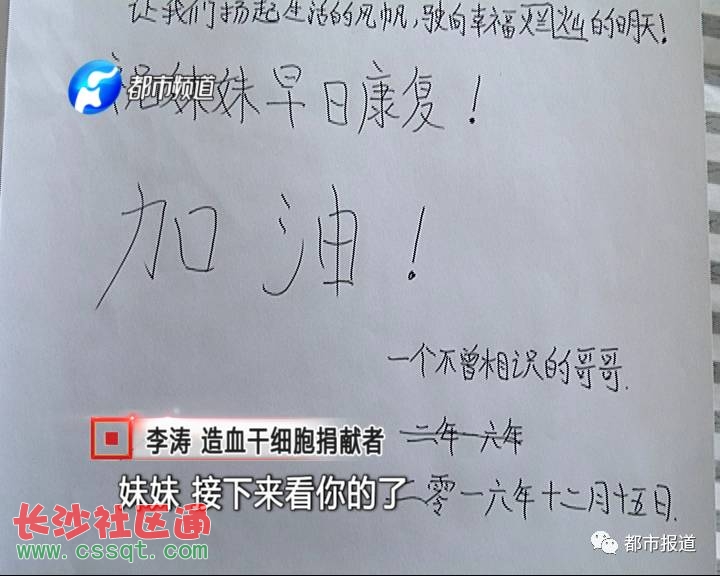 让我们扬起生活的风帆,驶向幸福灿烂的明天!
都市频道
祝妹妹早日康复!
加油!
一个不曾相识的哥哥.
二年一六年
李涛 造血干细胞捐献者
妹妹 接下来看你的了
二零一六年十二月十五日.
长沙社区通
www.cssqt.com
都市报道